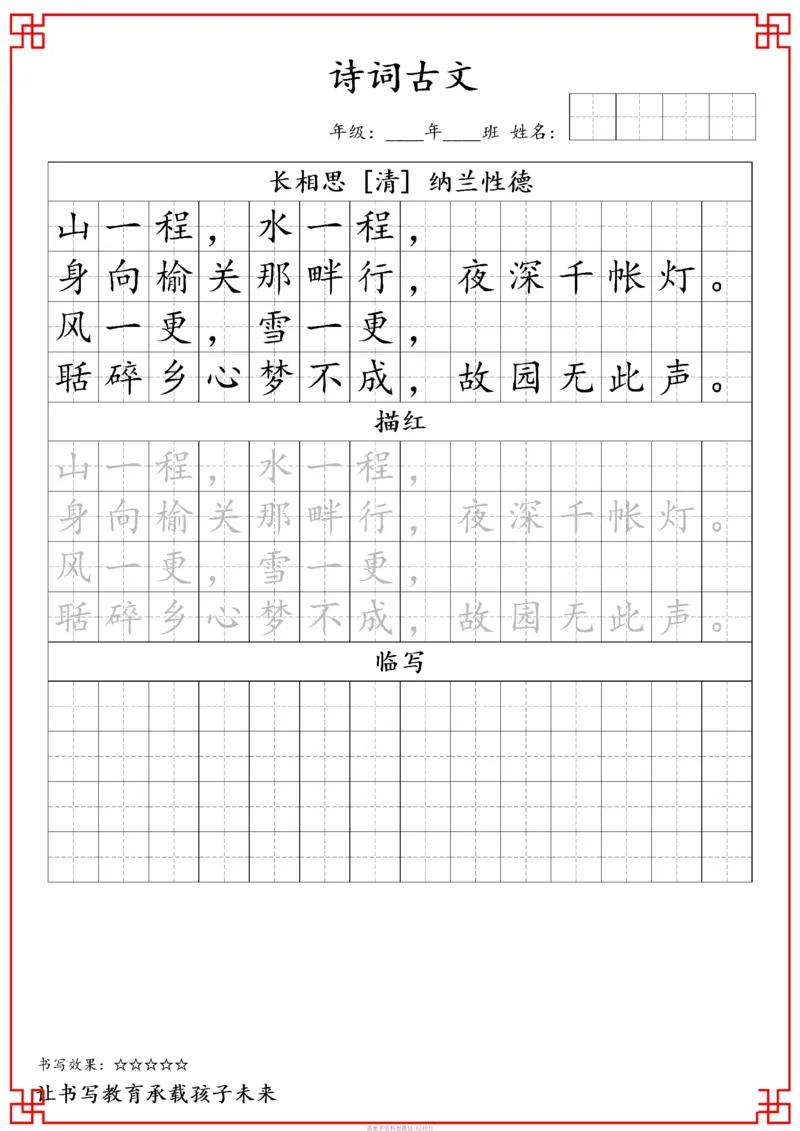 诗词古文
年级：____年____班 姓名：
长相思 [清] 纳兰性德
山一程，水一程，
身向榆关那畔行，夜深千帐灯。
风一更，雪一更，
聒碎乡心梦不成，故园无此声。
描红
山一程，水一程，
身向榆关那畔行，夜深千帐灯。
风一更，雪一更，
聒碎乡心梦不成，故园无此声。
临写
书写效果：☆☆☆☆☆
让书写教育承载孩子未来